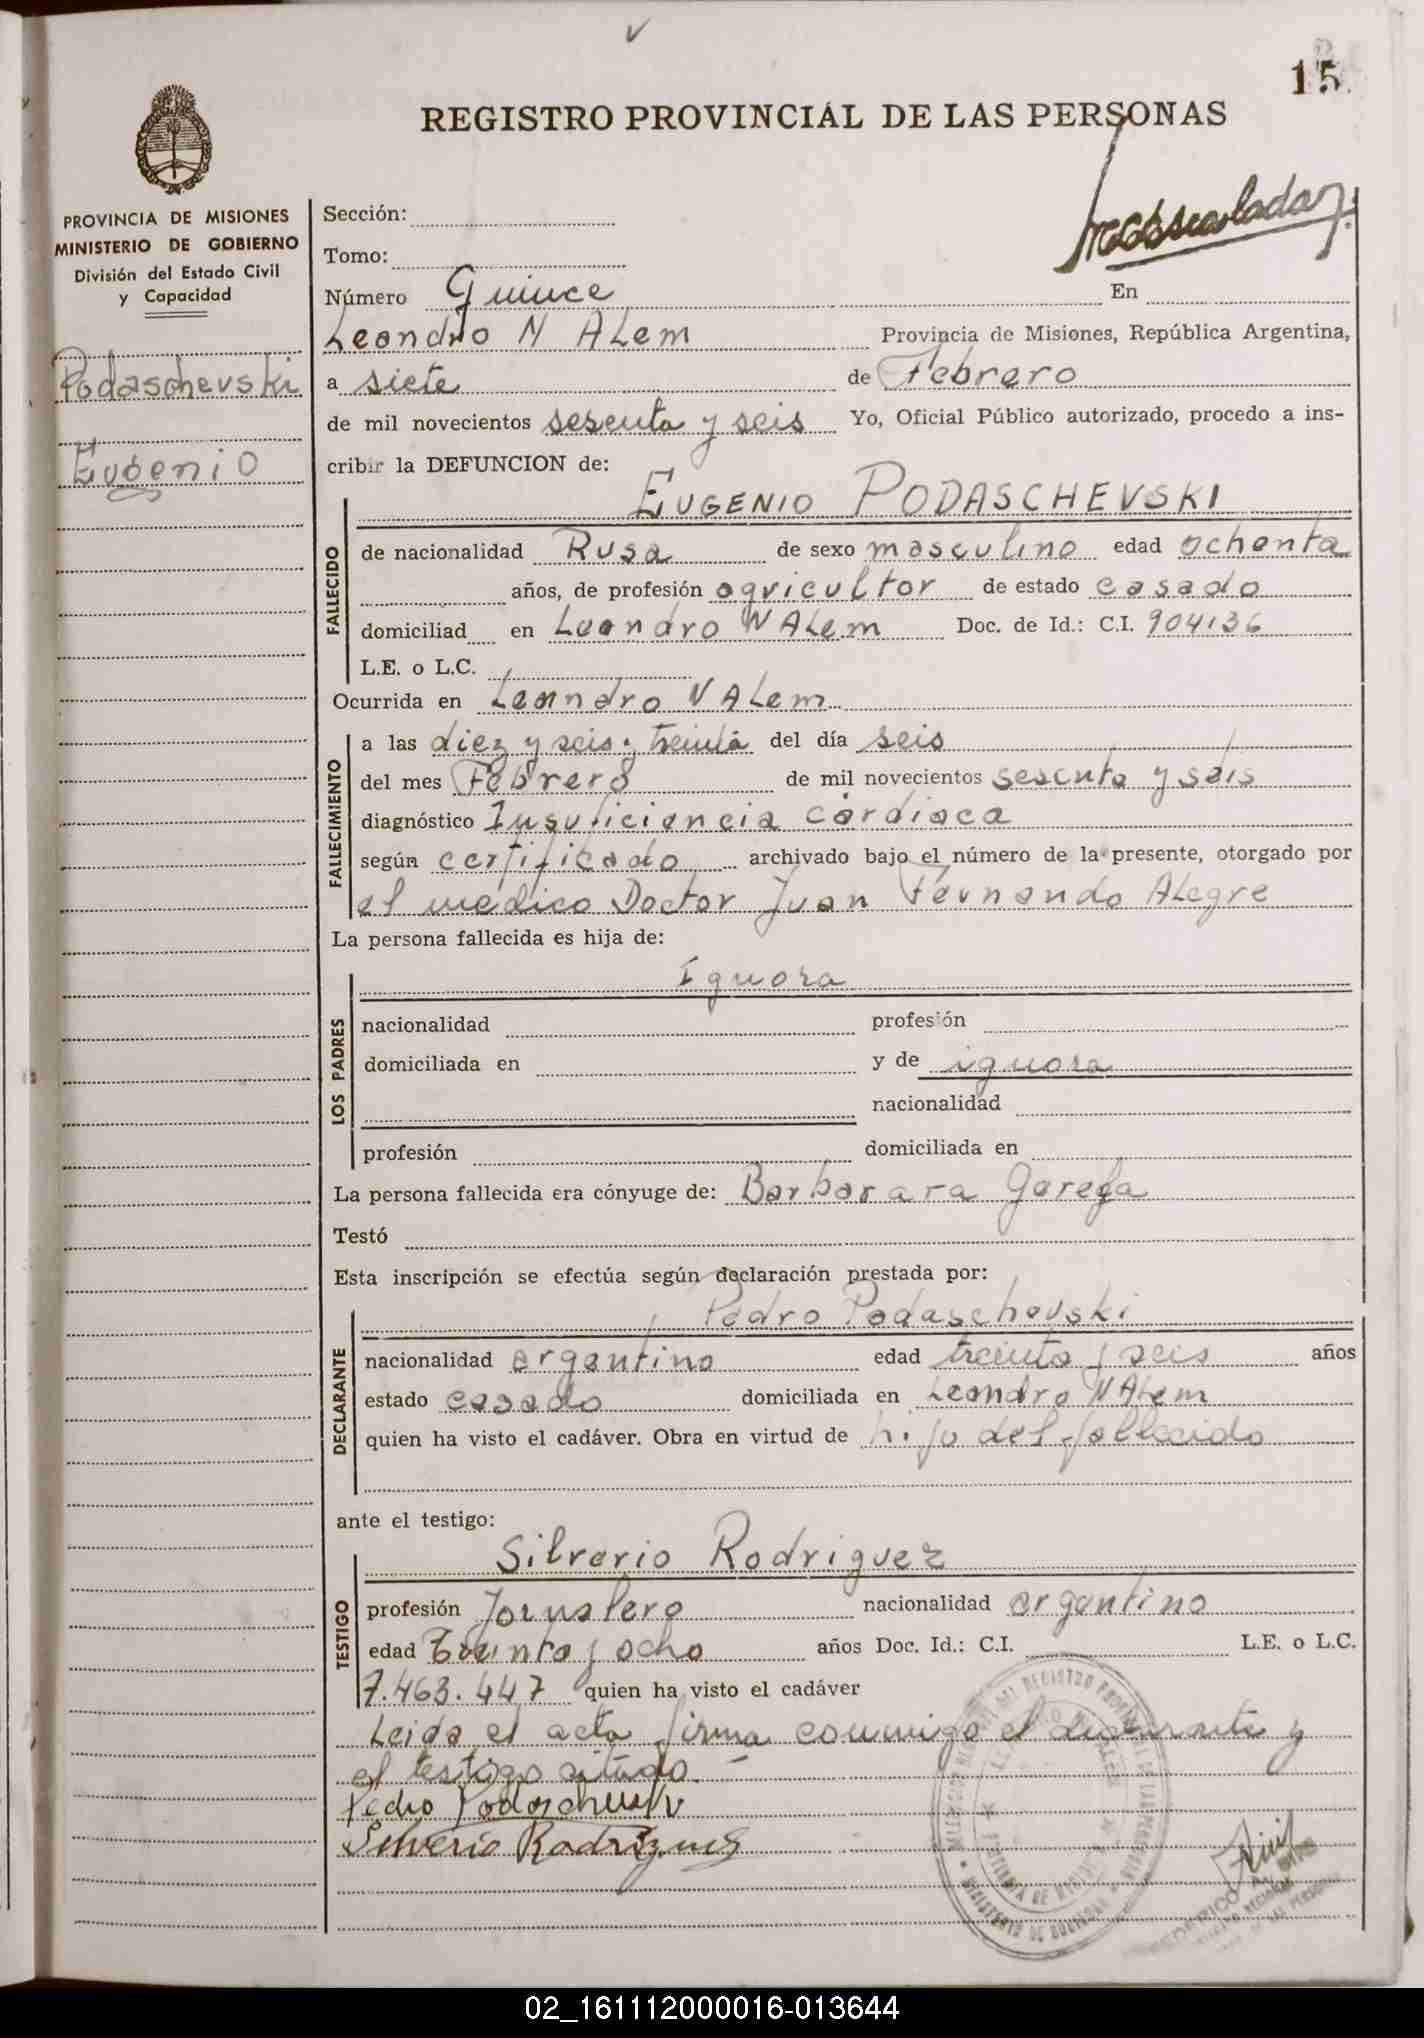 15
REGISTRO PROVINCIAL DE LAS PERSONAS
PROVINCIA DE MISIONES
MINISTERIO DE GOBIERNO
División del Estado Civil
y Capacidad
Podaschevski
Eugenio
Sección:
Tomo:
Número Quince En
Leandro N Alem Provincia de Misiones, República Argentina,
a siete de Febrero
de mil novecientos sesenta y seis Yo, Oficial Público autorizado, procedo a ins-
cribir la DEFUNCION de:
EUGENIO PODASCHEVSKI
FALLECIDO
de nacionalidad Rusa de sexo masculino edad ochenta
años, de profesión agricultor de estado casado
domiciliad en Leandro N Alem Doc. de Id.: C.I. 904136
L.E. o L.C.
Ocurrida en Leandro N Alem
FALLECIMIENTO
a las diez y seis y treinta del día seis
del mes Febrero de mil novecientos sesenta y seis
diagnóstico Insuficiencia cardiaca
según certificado archivado bajo el número de la presente, otorgado por
el medico Doctor Juan Fernando Alegre
La persona fallecida es hija de:
LOS PADRES
Ignora
nacionalidad profesión
domiciliada en y de ignora
nacionalidad
profesión domiciliada en
La persona fallecida era cónyuge de: Barbarara
Testó
Esta inscripción se efectúa según declaración prestada por:
Pedro Podaschevski
DECLARANTE
nacionalidad argentino edad treinta y seis años
estado casado domiciliada en Leandro N Alem
quien ha visto el cadáver. Obra en virtud de hijo del fallecido
ante el testigo:
Silverio Rodriguez
TESTIGO
profesión Jornalero nacionalidad argentino
edad Treinta y ocho años Doc. Id.: C.I. L.E. o L.C.
7.463.447 quien ha visto el cadáver
Leida el acta firma conmigo el declarante y
el testigo citado.
Pedro Podaschevski
Silverio Rodriguez
02_161112000016-013644